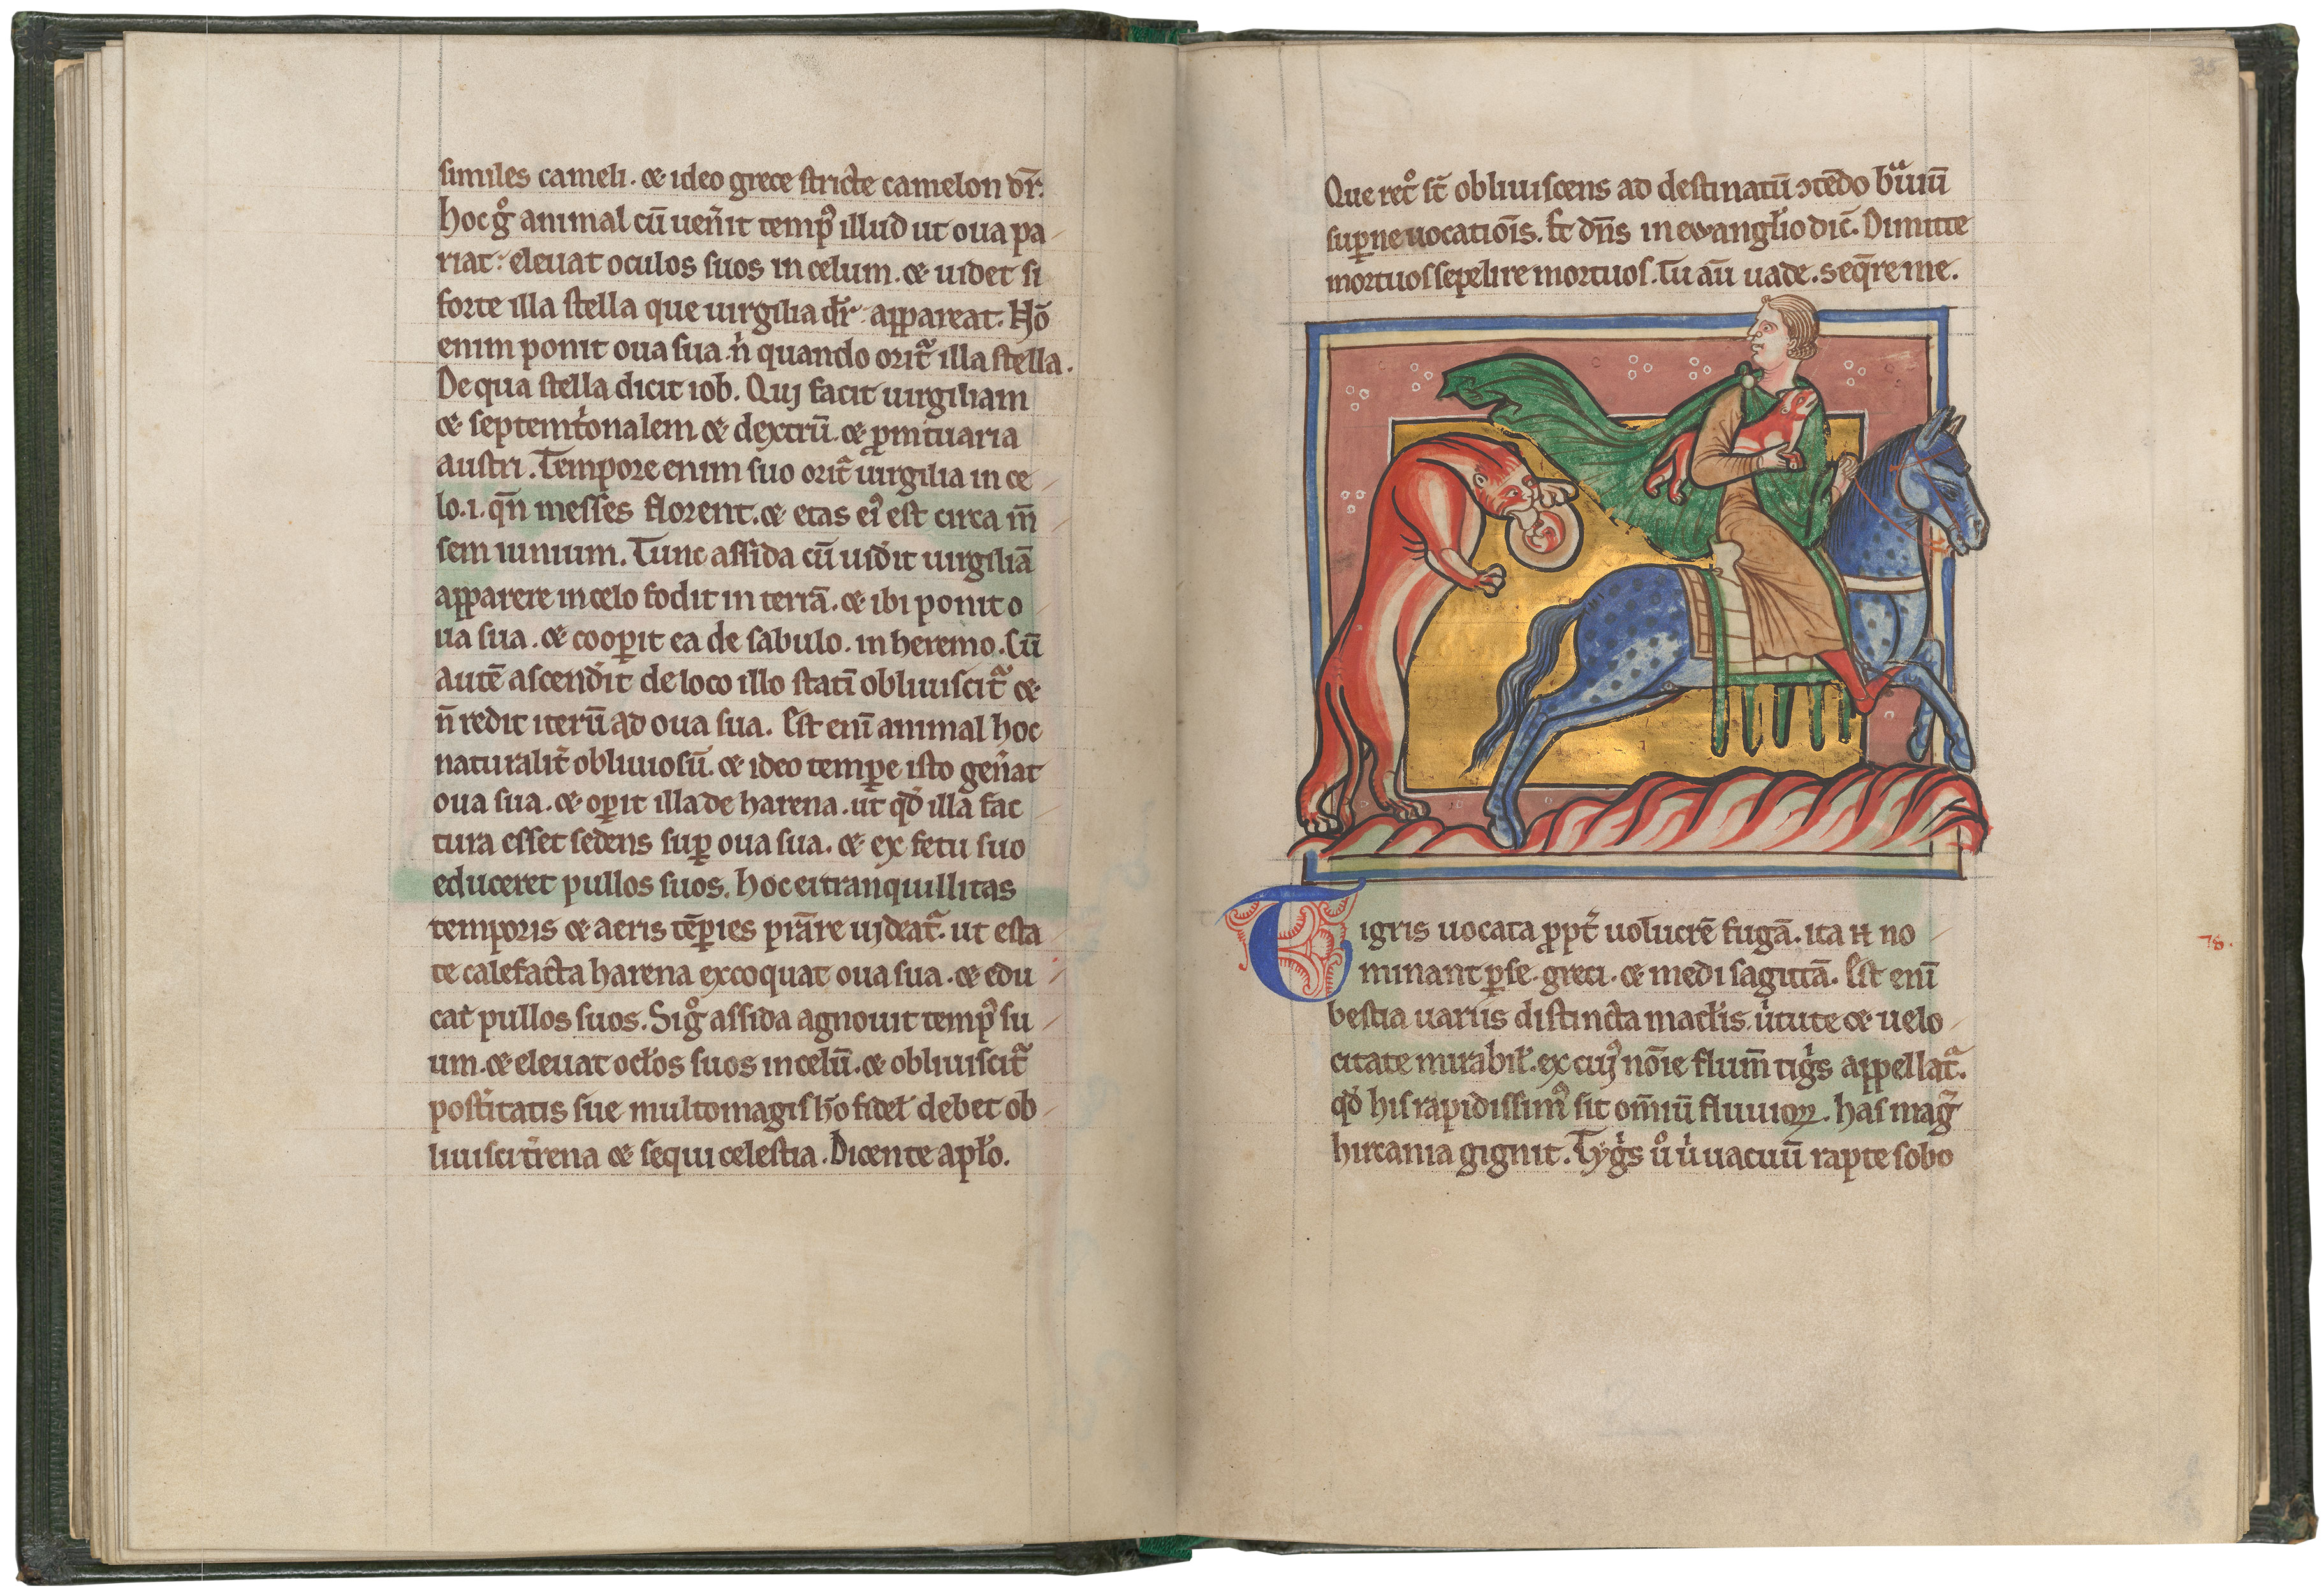 similes cameli. & ideo grece stricte camelon dr̄.
hoc gͦ animal cū uen̄it temp᷒ illud ut oua pa
riat: eleuat oculos suos in celum. & uidet si
forte illa stella que uirgilia dr̄ appareat. Nō
enim ponit oua sua n̄ quando orit᷑ illa stella.
De qua stella dicit iob. Qui facit uirgiliam
& septemt͛onalem & dextrū. & ꝓmtuaria
austri. Tempore enim suo orit᷑ uirgilia in ce
lo. i. qn̄ messes florent. & etas ei᷒ est circa m̄
sem iunium. Tunc assida cū uid͛it uirgiliā
apparere in celo fodit in terrā. & ibi ponit o
ua sua. & cooꝑit ea de sabulo. in heremo. Cū
autē ascend͛it de loco illo statī obliuiscit᷑ &
n̄ redit iterū ad oua sua. Est enī animal hoc
naturalit͛ obliuiosū. & ideo tempe isto gen̄at
oua sua. & oꝑit illa de harena. ut qd͛ illa fac
tura esset sedens suꝑ oua sua. & ex fetu suo
educeret pullos suos. hoc ei tranquillitas
temporis & aeris tēꝑies p͛stare uideat᷑. ut esta
te calefacta harena excoquat oua sua. & edu
cat pullos suos. Si gͦ assida agnouit temp᷒ su
um. & eleuat oclos suos in celū. & obliuiscit᷑
post͛itatis sue multomagis hō fidel͛ debet ob
liuisci t͛rena & sequi celestia. Dicente aplo.
Que retͦ st̄ obliuiscens ad destinatū ɔtēdo bͣuiū
suꝑne uocatiōis. Et dn̄s in ewanglio dic̄. Dimitte
mortuos sepelire mortuos. Tu aū uade. seq̄re me.
35
Tigris uocata ꝓpt͛ uolucrē fugā. ita n̄ no
minant ꝑse. greci. & medi sagittā. Est enī
bestia uariis distincta maclis. u͛tute & uelo
citate mirabil͛. ex cui᷒ noīe flum̄ tig͛s appellat᷑.
qd͛ his rapidissim᷒ sit omīū fluuioꝝ. has mag᷑
hircania gignit. Tyg͛s uͦ u͛ uacuū rapte sobo
78.